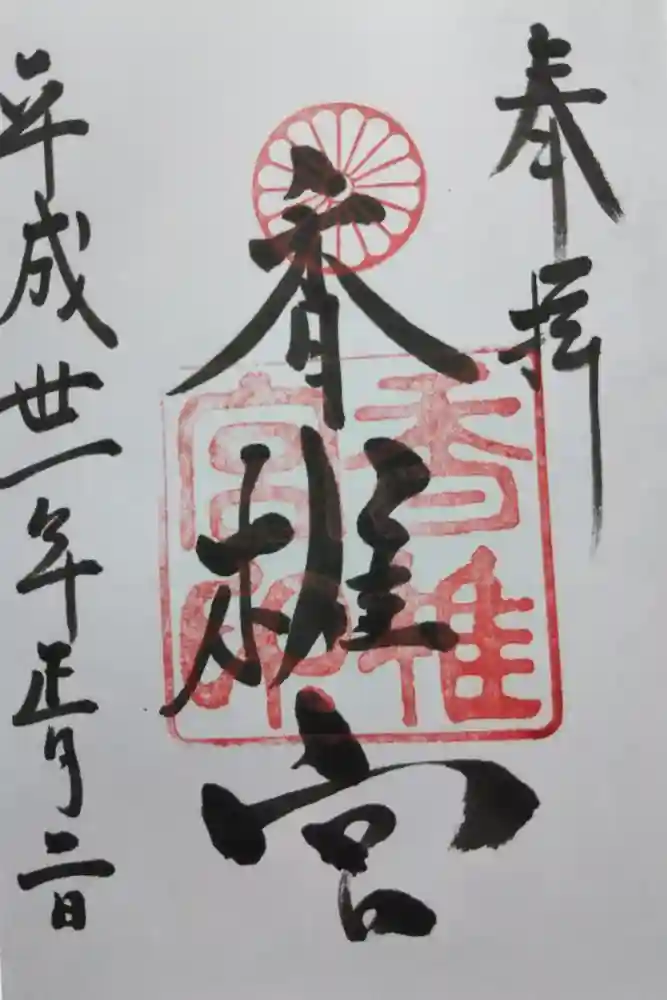 奉拝
香椎宮
香椎宮印
平成卅一年正月二日